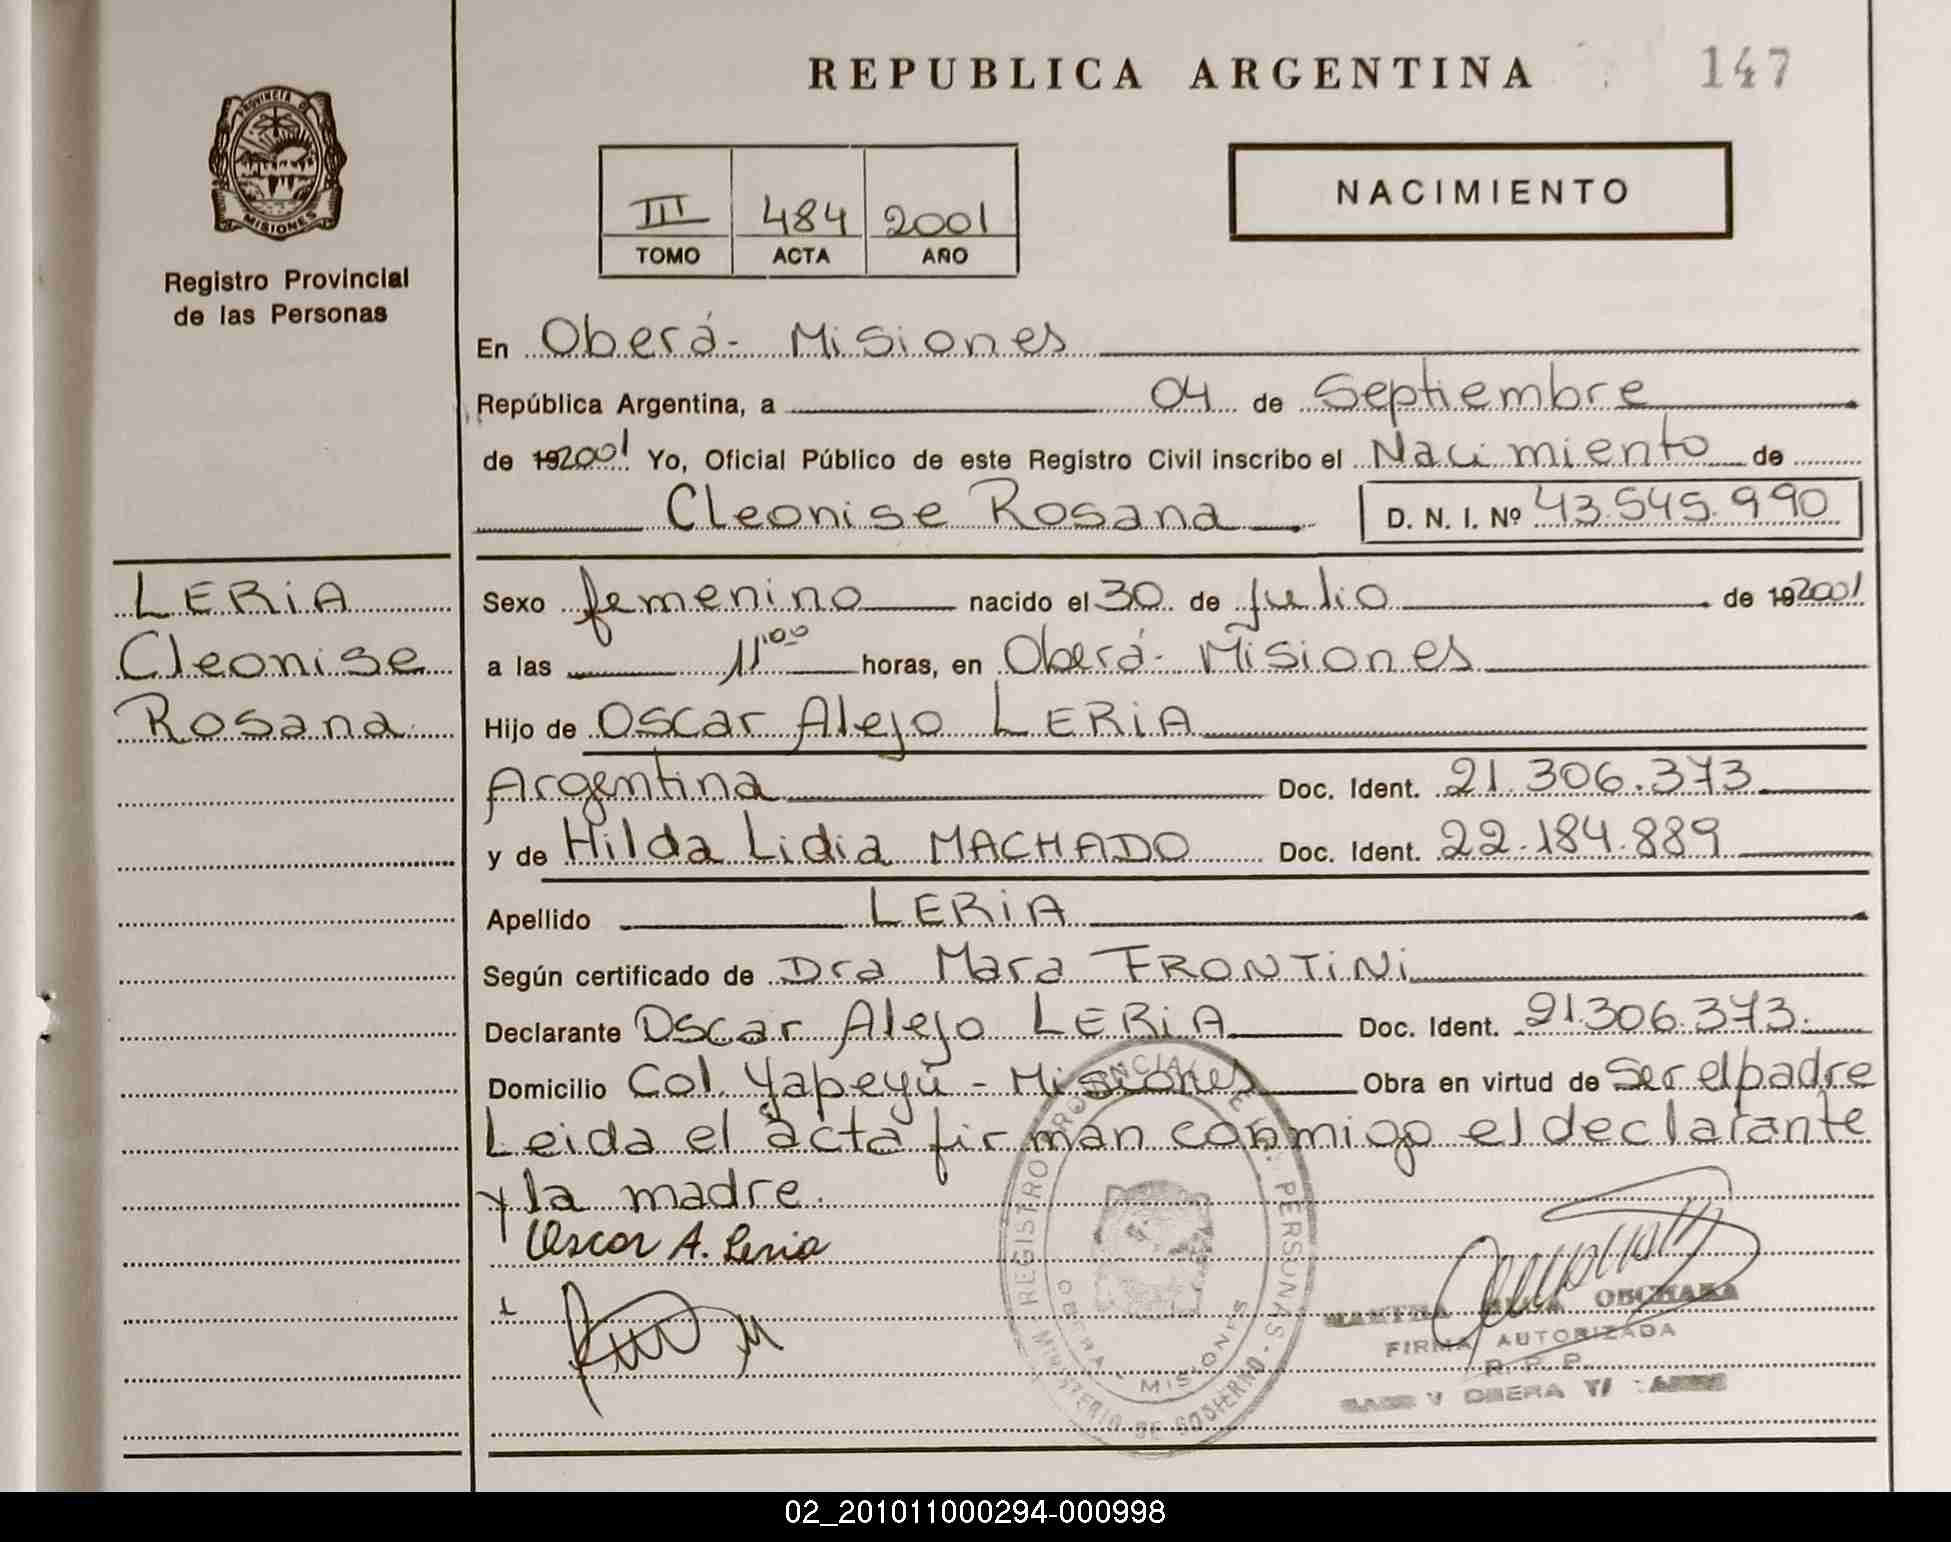 REPUBLICA ARGENTINA
147
PROVINCIA DE
MISIONES
Registro Provincial
de las Personas
III 484 2001
TOMO ACTA AÑO
NACIMIENTO
En Oberá- Misiones
República Argentina, a 04 de Septiembre
de 192001 Yo, Oficial Público de este Registro Civil inscribo el Nacimiento de
Cleonise Rosana D. N. I. Nº 43.545.990
LERiA
Cleonise
Rosana.
Sexo femenino nacido el 30 de Julio de 192001
a las 11:00 horas, en Oberá- Misiones
Hijo de Oscar Alejo LERiA
Argentina Doc. Ident. 21.306.373
y de Hilda Lidia MACHADO Doc. Ident. 22.184.889
Apellido LERiA
Según certificado de Dra Mara FRONTiNi
Declarante Oscar Alejo LERiA Doc. Ident. 21.306.373.
Domicilio Col. Yapeyú - Misiones Obra en virtud de Ser el padre
Leida el acta firman conmigo el declarante
y la madre.
Oscar A. Leria
REGISTRO PROVINCIAL DE PERSONAS
MINISTERIO DE GOBIERNO
OBERA MISIONES
FIRMA AUTORIZADA
R. P. P.
OBERA
02_201011000294-000998